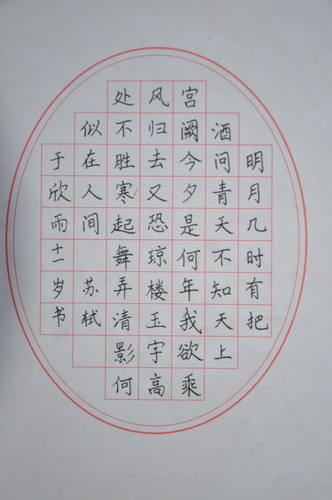 明月几时有把
酒问青天不知天上
宫阙今夕是何年我欲乘
风归去又恐琼楼玉宇高
处不胜寒起舞弄清影何
似在人间 苏轼
于欣雨十一岁书